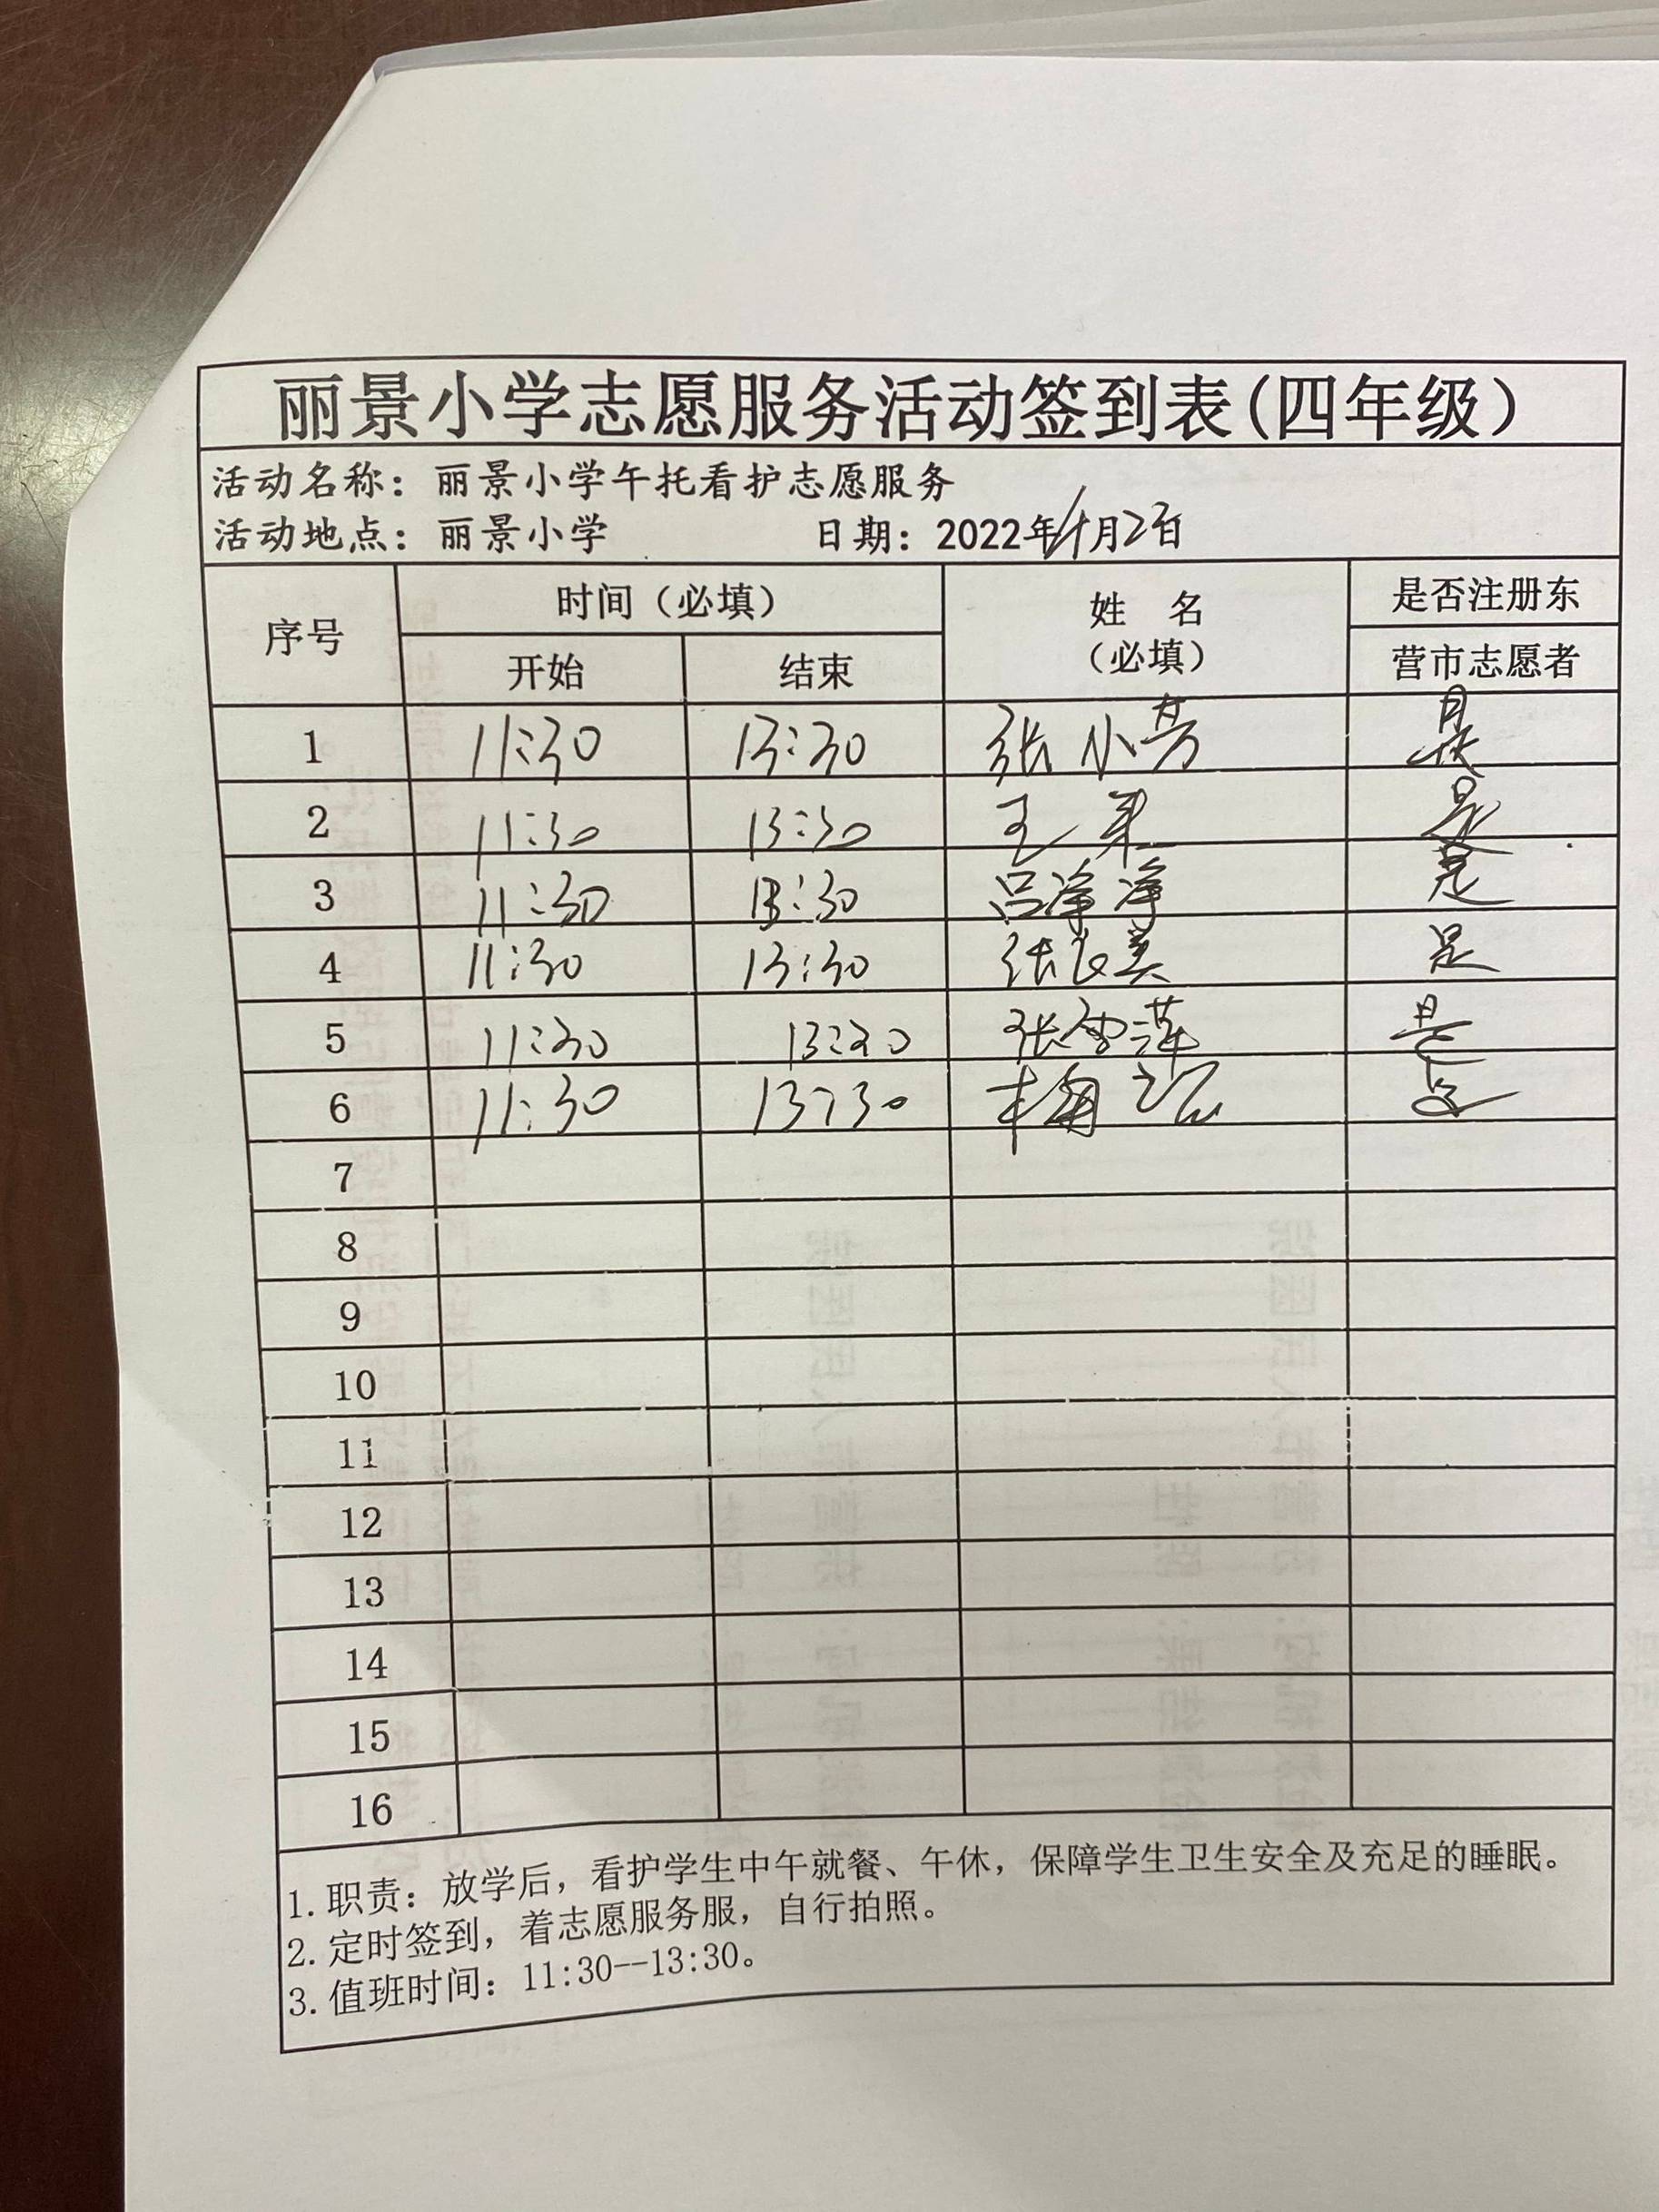 丽景小学志愿服务活动签到表(四年级)
活动名称：丽景小学午托看护志愿服务
活动地点：丽景小学 日期：2022年 月2日
序号 时间（必填） 姓 名（必填） 是否注册东营市志愿者
开始 结束
1 11:30 13:30 张小芳 是
2 11:30 13:30 王 是
3 11:30 13:30 吕净净 是
4 11:30 13:30 张良美 是
5 11:30 13:30 张雪萍 是
6 11:30 13:30 是
7
8
9
10
11
12
13
14
15
16
1.职责：放学后，看护学生中午就餐、午休，保障学生卫生安全及充足的睡眠。
2.定时签到，着志愿服务服，自行拍照。
3.值班时间：11:30--13:30。